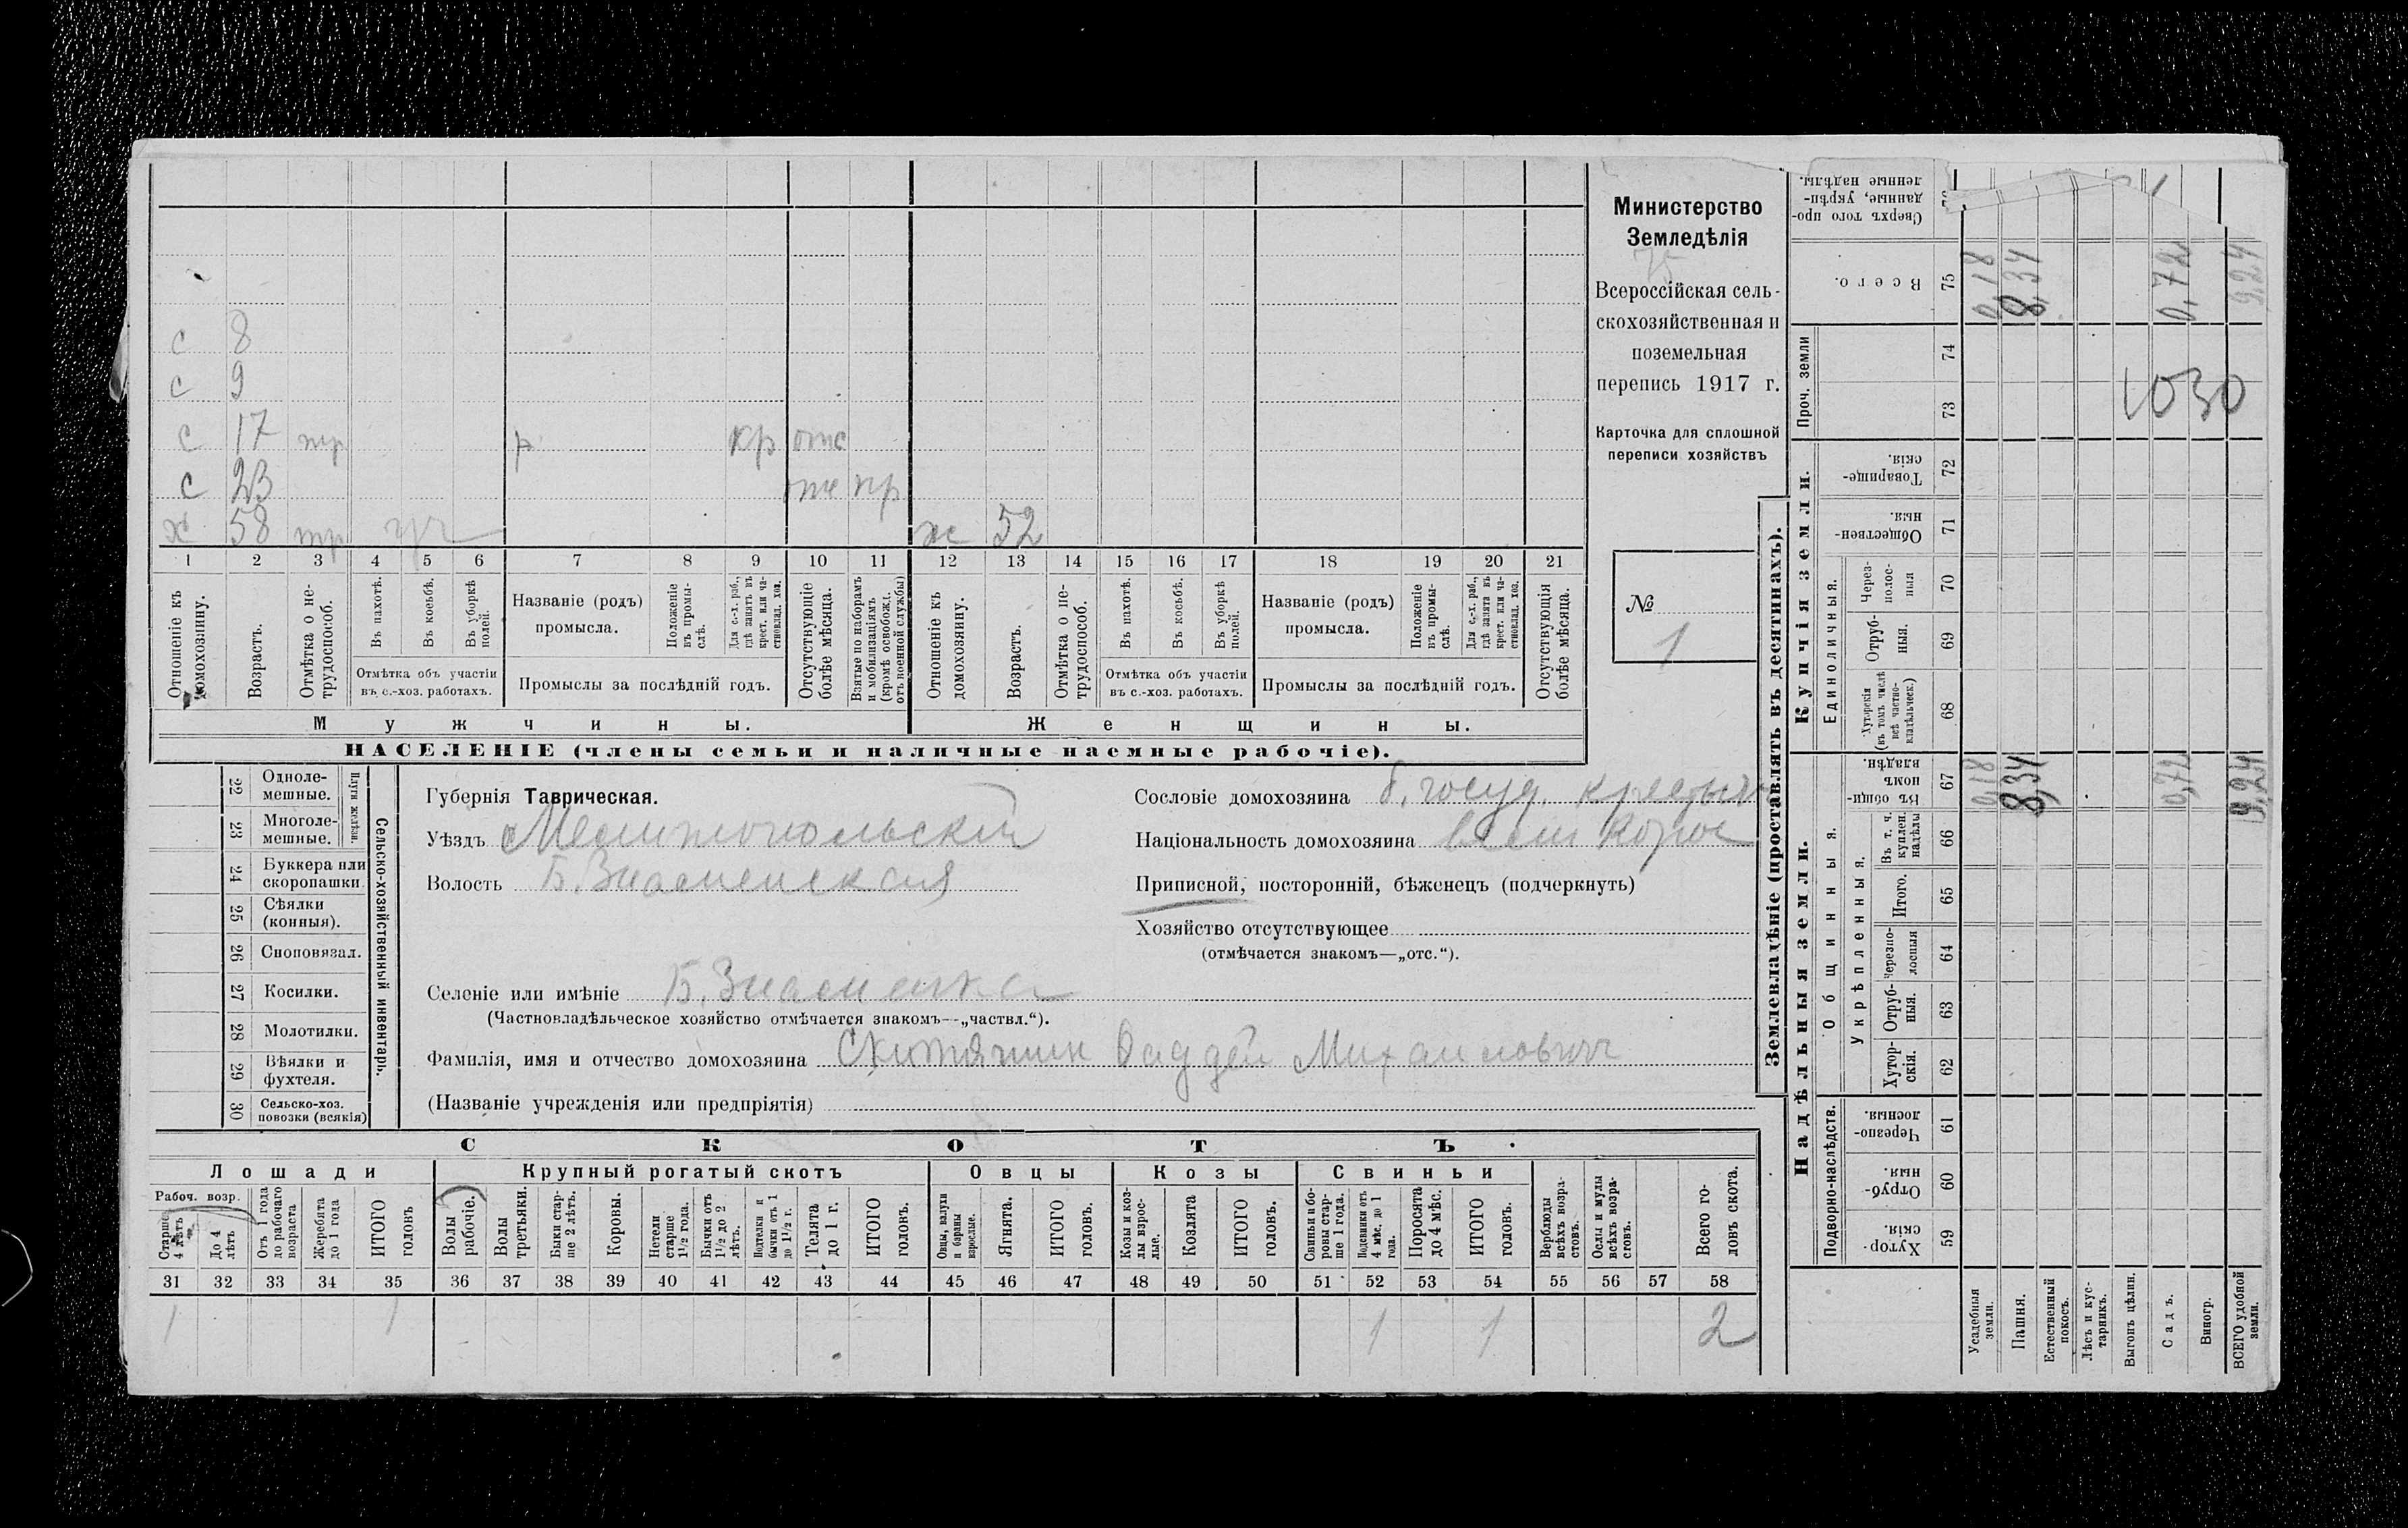 Министерство
Земледѣлія
75
Всероссійская сель-
скохозяйственная и
поземельная
перепись 1917 г.
Карточка для сплошной
переписи хозяйствъ
№
1
с 8
с 9
с 17 тр р кр отс
с 23 отс пр
х 58 тр ж 52
1 2 3 4 5 6 7 8 9 10 11 12 13 14 15 16 17 18 19 20 21
Отношеніе къ домохозяину.
Возрастъ.
Отмѣтка о не-
трудоспособ.
Въ пахотѣ.
Въ косьбѣ.
Въ уборкѣ
полей.
Отмѣтка объ участіи
въ с.-хоз. работахъ.
Названіе (родъ)
промысла.
Положеніе
въ промы-
слѣ.
Для с.-х. раб.,
гдѣ занятъ въ
крест. или ча-
стновлад. хоз.
Промыслы за послѣдній годъ.
Отсутствующіе
болѣе мѣсяца.
Взятые по наборамъ
и мобилизаціямъ
(кромѣ освобожд.
отъ военной службы)
Отношеніе къ
домохозяину.
Возрастъ.
Отмѣтка о не-
трудоспособ.
Въ пахотѣ.
Въ косьбѣ.
Въ уборкѣ
полей.
Отмѣтка объ участіи
въ с.-хоз. работахъ.
Названіе (родъ)
промысла.
Положеніе
въ промы-
слѣ.
Для с.-х. раб.,
гдѣ занята въ
крест. или ча-
стновлад. хоз.
Промыслы за послѣдній годъ.
Отсутствующія
болѣе мѣсяца.
Мужчины.
Женщины.
НАСЕЛЕНІЕ (члены семьи и наличные наемные рабочіе).
22 Одноле-
мешные.
23 Многоле-
мешные.
Плуги желѣзн.
24 Буккера или
скоропашки
25 Сѣялки
(конныя).
26 Сноповязал.
27 Косилки.
28 Молотилки.
29 Вѣялки и
фухтеля.
30 Сельско-хоз.
повозки (всякія)
Сельско-хозяйственный инвентарь.
Губернія Таврическая.
Уѣздъ Мелитопольскій
Волость Б. Знаменская
Селеніе или имѣніе Б. Знаменка
(Частновладѣльческое хозяйство отмѣчается знакомъ—„частвл.“).
Фамилія, имя и отчество домохозяина Скитяшин Фаддей Михайлович
(Названіе учрежденія или предпріятія)
Сословіе домохозяина б. госуд. крестья
Національность домохозяина
Приписной, посторонній, бѣженецъ (подчеркнуть)
Хозяйство отсутствующее
(отмѣчается знакомъ—„отс.“).
СКОТЪ.
Лошади Крупный рогатый скотъ Овцы Козы Свиньи
Рабоч. возр.
Старше
4 лѣтъ
До 4
лѣтъ
Отъ 1 года
до рабочаго
возраста
Жеребята
до 1 года
ИТОГО
головъ
Волы
рабочіе.
Волы
третьяки.
Быки стар-
ше 2 лѣтъ.
Коровы.
Нетели
старше
1½ года.
Бычки отъ
1½ до 2
лѣтъ.
Подтелки и
бычки отъ 1
до 1½ г.
Телята
до 1 г.
ИТОГО
головъ.
Овцы, валухи
и бараны
взрослые.
Ягнята.
ИТОГО
головъ.
Козы и коз-
лы взрос-
лые.
Козлята
ИТОГО
головъ.
Свиньи и бо-
ровы стар-
ше 1 года.
Подсвинки отъ
4 мѣс. до 1
года.
Поросята
до 4 мѣс.
ИТОГО
головъ.
Верблюды
всѣхъ возра-
стовъ.
Ослы и мулы
всѣхъ возра-
стовъ.
Всего го-
ловъ скота.
31 32 33 34 35 36 37 38 39 40 41 42 43 44 45 46 47 48 49 50 51 52 53 54 55 56 57 58
1 1 1 1 2
Землевладѣніе (проставлять въ десятинахъ).
Надѣльныя земли.
Купчія земли.
Проч. земли
Подворно-наслѣдств.
Общинныя.
Укрѣпленныя.
Единоличныя.
Сверхъ того про-
данные, укрѣп-
ленные надѣлы.
Всего. 75 0,18 8,34 0,72 9,24
74
73 1030
Товарище-
скія. 72
Обществен-
ныя. 71
Через-
полос-
ныя 70
Отруб-
ныя. 69
Хуторскія
(въ томъ числѣ
всѣ частно-
владѣльческ.) 68
Въ общин-
номъ
владѣн. 67 0,18 8,34 0,72 9,24
Въ т. ч.
куплен.
надѣлы 66
Итого. 65
Черезпо-
лосныя 64
Отруб-
ныя. 63
Хутор-
скія. 62
Черезпо-
лосныя. 61
Отруб-
ныя. 60
Хутор-
скія. 59
Усадебныя
земли.
Пашня.
Естественный
покосъ.
Лѣсъ и кус-
тарникъ.
Выгонъ цѣлин.
Садъ.
Виногр.
ВСЕГО удобной
земли.